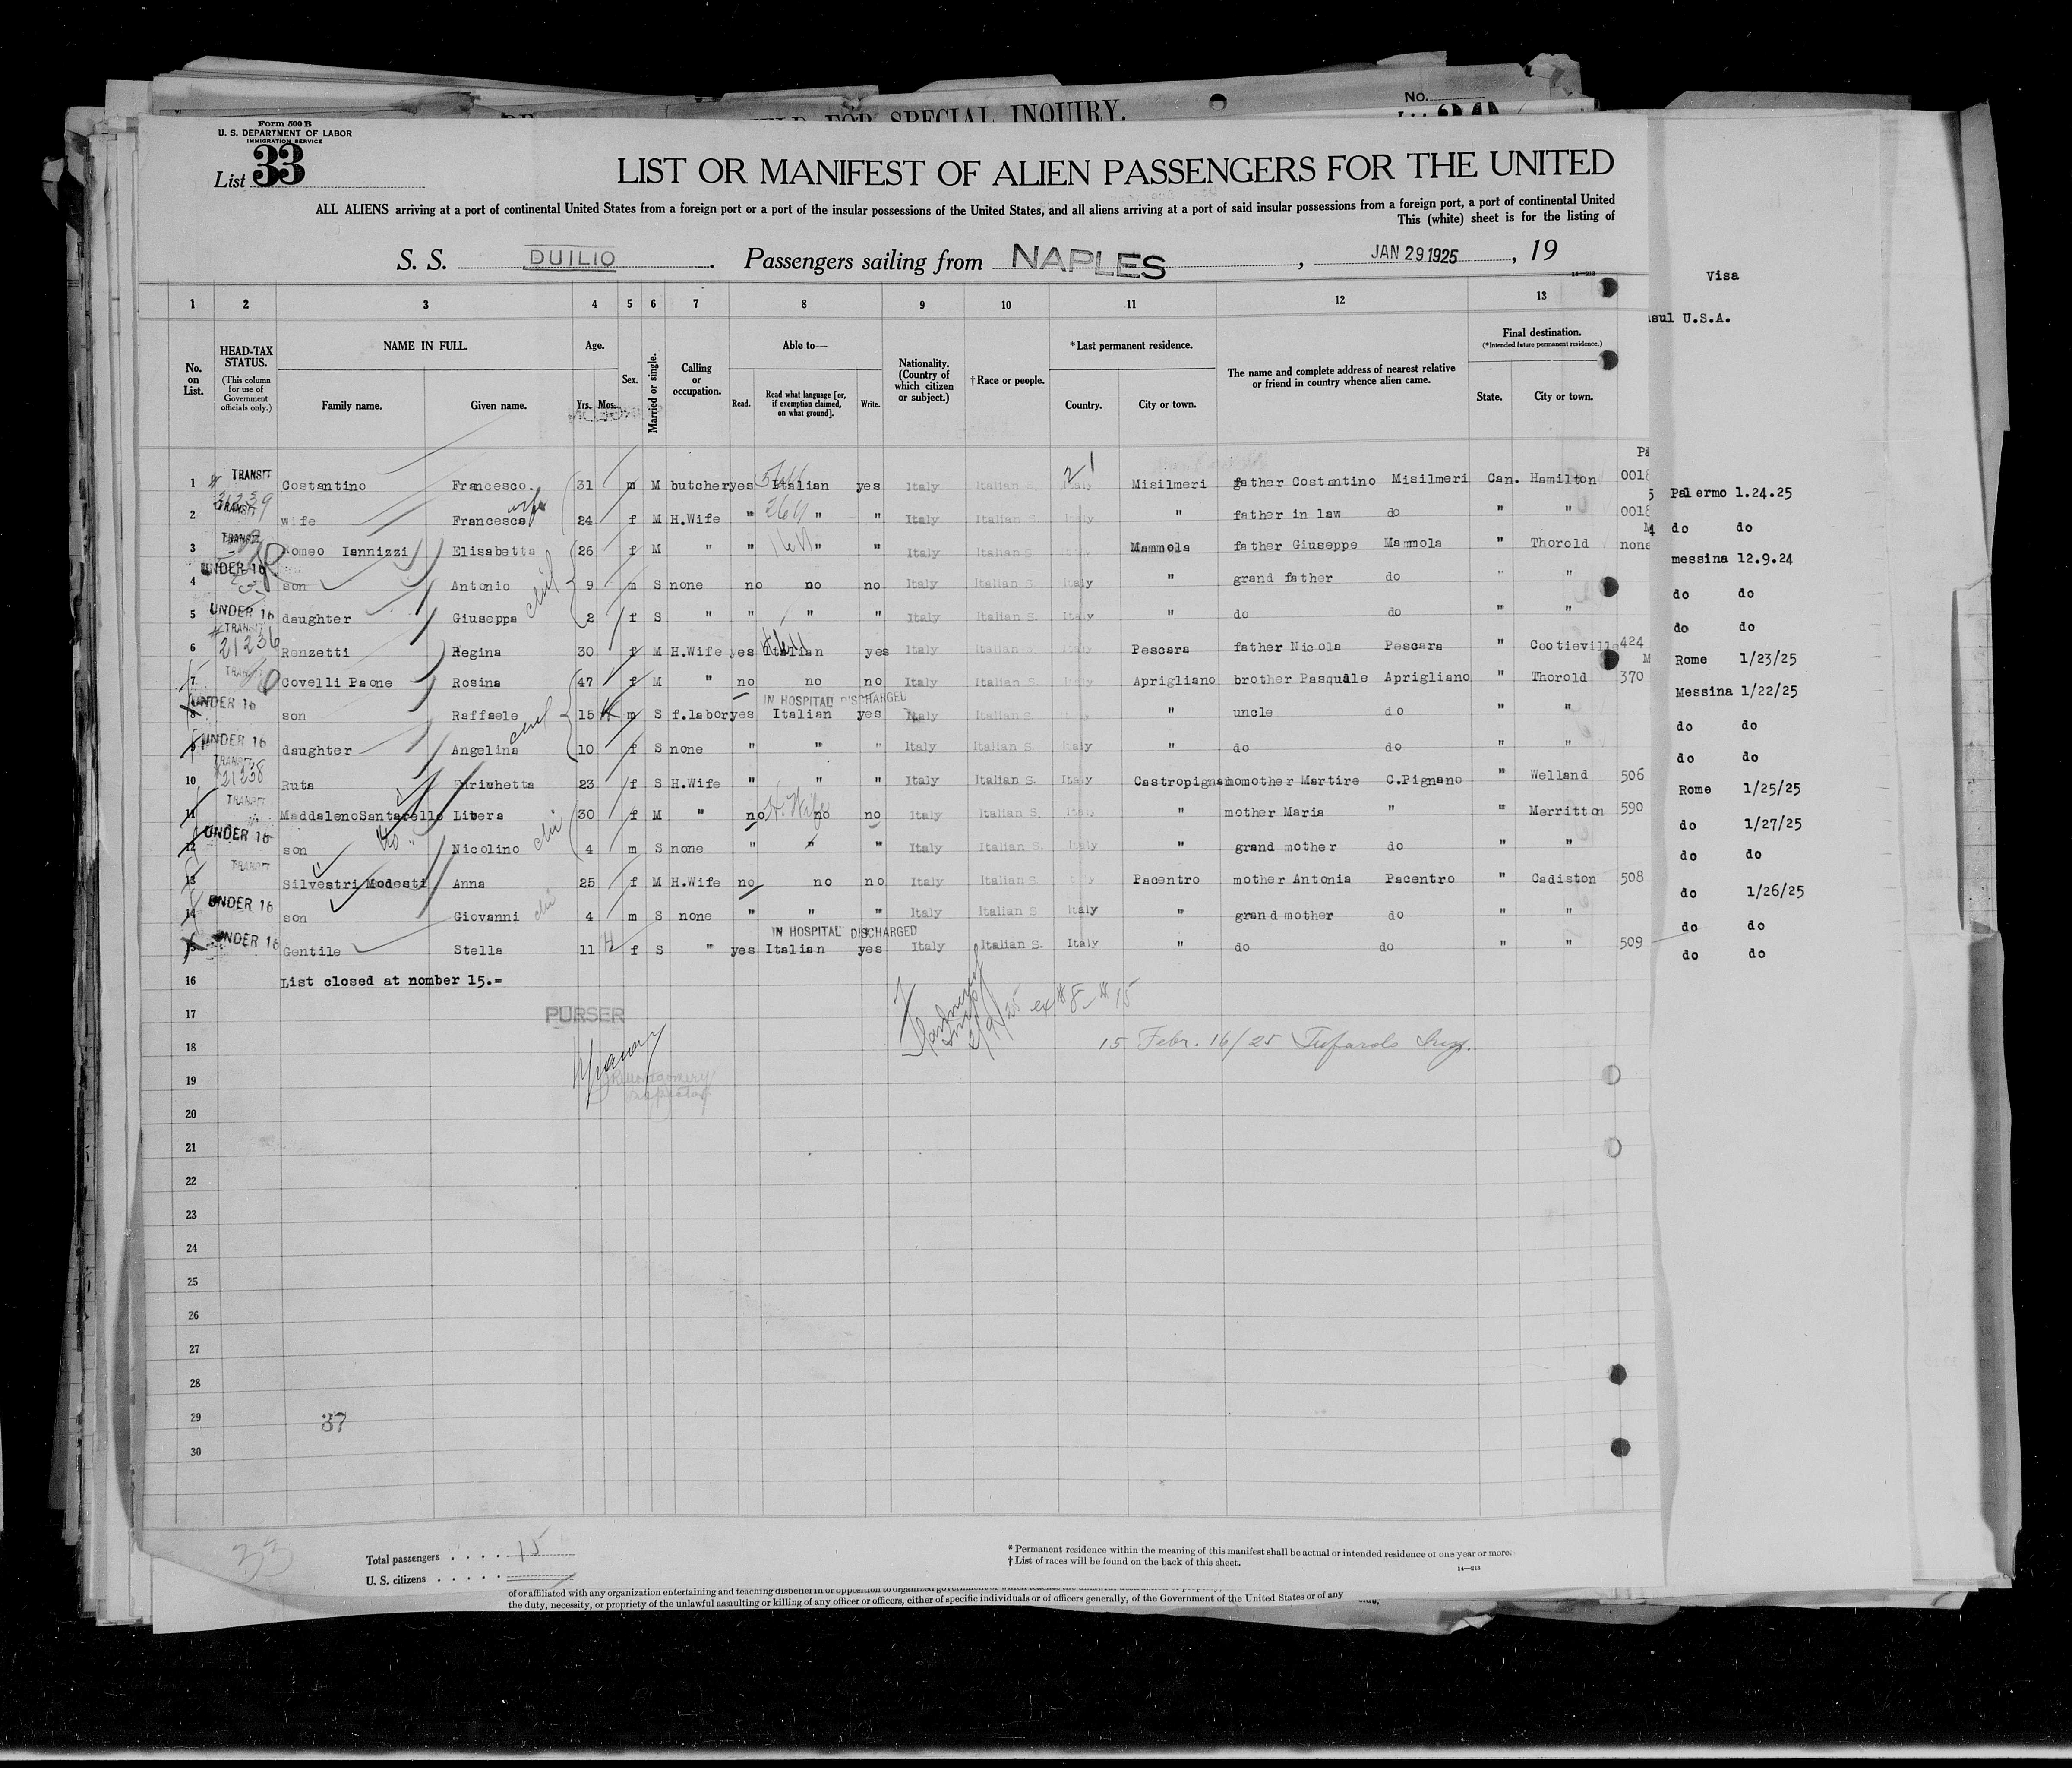 FOR SPECIAL INQUIRY.
No.
Form 500 B
U. S. DEPARTMENT OF LABOR
IMMIGRATION SERVICE
List 33
LIST OR MANIFEST OF ALIEN PASSENGERS FOR THE UNITED
ALL ALIENS arriving at a port of continental United States from a foreign port or a port of the insular possessions of the United States, and all aliens arriving at a port of said insular possessions from a foreign port, a port of continental United
This (white) sheet is for the listing of
S. S. DUILIO. Passengers sailing from NAPLES, JAN 29 1925, 19
Visa
sul U.S.A.
1 2 3 4 5 6 7 8 9 10 11 12 13
No. on List.
HEAD-TAX STATUS.
(This column for use of Government officials only.)
NAME IN FULL.
Family name. Given name.
Age.
Yrs. Mos.
Sex.
Married or single.
Calling or occupation.
Able to—
Read. Read what language [or, if exemption claimed, on what ground]. Write.
Nationality. (Country of which citizen or subject.)
† Race or people.
* Last permanent residence.
Country. City or town.
The name and complete address of nearest relative or friend in country whence alien came.
Final destination.
(*Intended future permanent residence.)
State. City or town.
1 TRANSIT Costantino Francesco 31 m M butcher yes Italian yes Italy Italian S. Italy Misilmeri father Costantino Misilmeri Can. Hamilton 0018 Palermo 1.24.25
2 21239 wife Francesca wife 24 f M H.Wife " " " Italy Italian S. Italy " father in law do " " 0018 do do
3 TRANSIT Romeo Iannizzi Elisabetta 26 f M " " " " Italy Italian S. Mammola father Giuseppe Mammola " Thorold none messina 12.9.24
4 UNDER 16 son Antonio 9 m S none no no no Italy Italian S. Italy " grand father do " " do do
5 UNDER 16 daughter Giuseppa 2 f S " " " " Italy Italian S. Italy " do do " " do do
6 TRANSIT 21236 Renzetti Regina 30 f M H.Wife yes Italian yes Italy Italian S. Pescara father Nicola Pescara " Cootieville 424 Rome 1/23/25
7 TRANSIT Covelli Paone Rosina 47 f M " no no no Italy Italian S. Italy Aprigliano brother Pasquale Aprigliano " Thorold 370 Messina 1/22/25
IN HOSPITAL DISCHARGED
8 UNDER 16 son Raffaele 15 m S f.labor yes Italian yes Italy Italian S. Italy " uncle do " " do do
9 UNDER 16 daughter Angelina 10 f S none " " " Italy Italian S Italy " do do " " do do
10 TRANSIT 21238 Ruta Enrichetta 23 f S H.Wife " " " Italy Italian S. Italy Castropignano mother Martire C.Pignano " Welland 506 Rome 1/25/25
11 TRANSIT MaddalenoSantarello Libera 30 f M " no H. Wife no no Italy Italian S. Italy " mother Maria " " Merritton 590 do 1/27/25
12 UNDER 16 son Nicolino 4 m S none " " " Italy Italian S. Italy " grand mother do " " do do
13 TRANSIT Silvestri Modesti Anna 25 f M H.Wife no no no Italy Italian S Pacentro mother Antonia Pacentro " Cadiston 508 do 1/26/25
14 UNDER 16 son Giovanni 4 m S none " " " Italy Italian S Italy " grand mother do " " do do
IN HOSPITAL DISCHARGED
15 UNDER 16 Gentile Stella 11 f S " yes Italian yes Italy Italian S. Italy " do do " " 509 do do
16 List closed at nomber 15.=
17 PURSER
2/9/25 ex # 8 - # 15
18 15 Febr. 16/25 Tufarolo Insp.
19 Montgomery
Inspector
20
21
22
23
24
25
26
27
28
29 37
30
33
Total passengers . . . . 15
U. S. citizens . . . . .
* Permanent residence within the meaning of this manifest shall be actual or intended residence of one year or more.
† List of races will be found on the back of this sheet.
14—213
of or affiliated with any organization entertaining and teaching disbelief in or opposition to organized government
the duty, necessity, or propriety of the unlawful assaulting or killing of any officer or officers, either of specific individuals or of officers generally, of the Government of the United States or of any